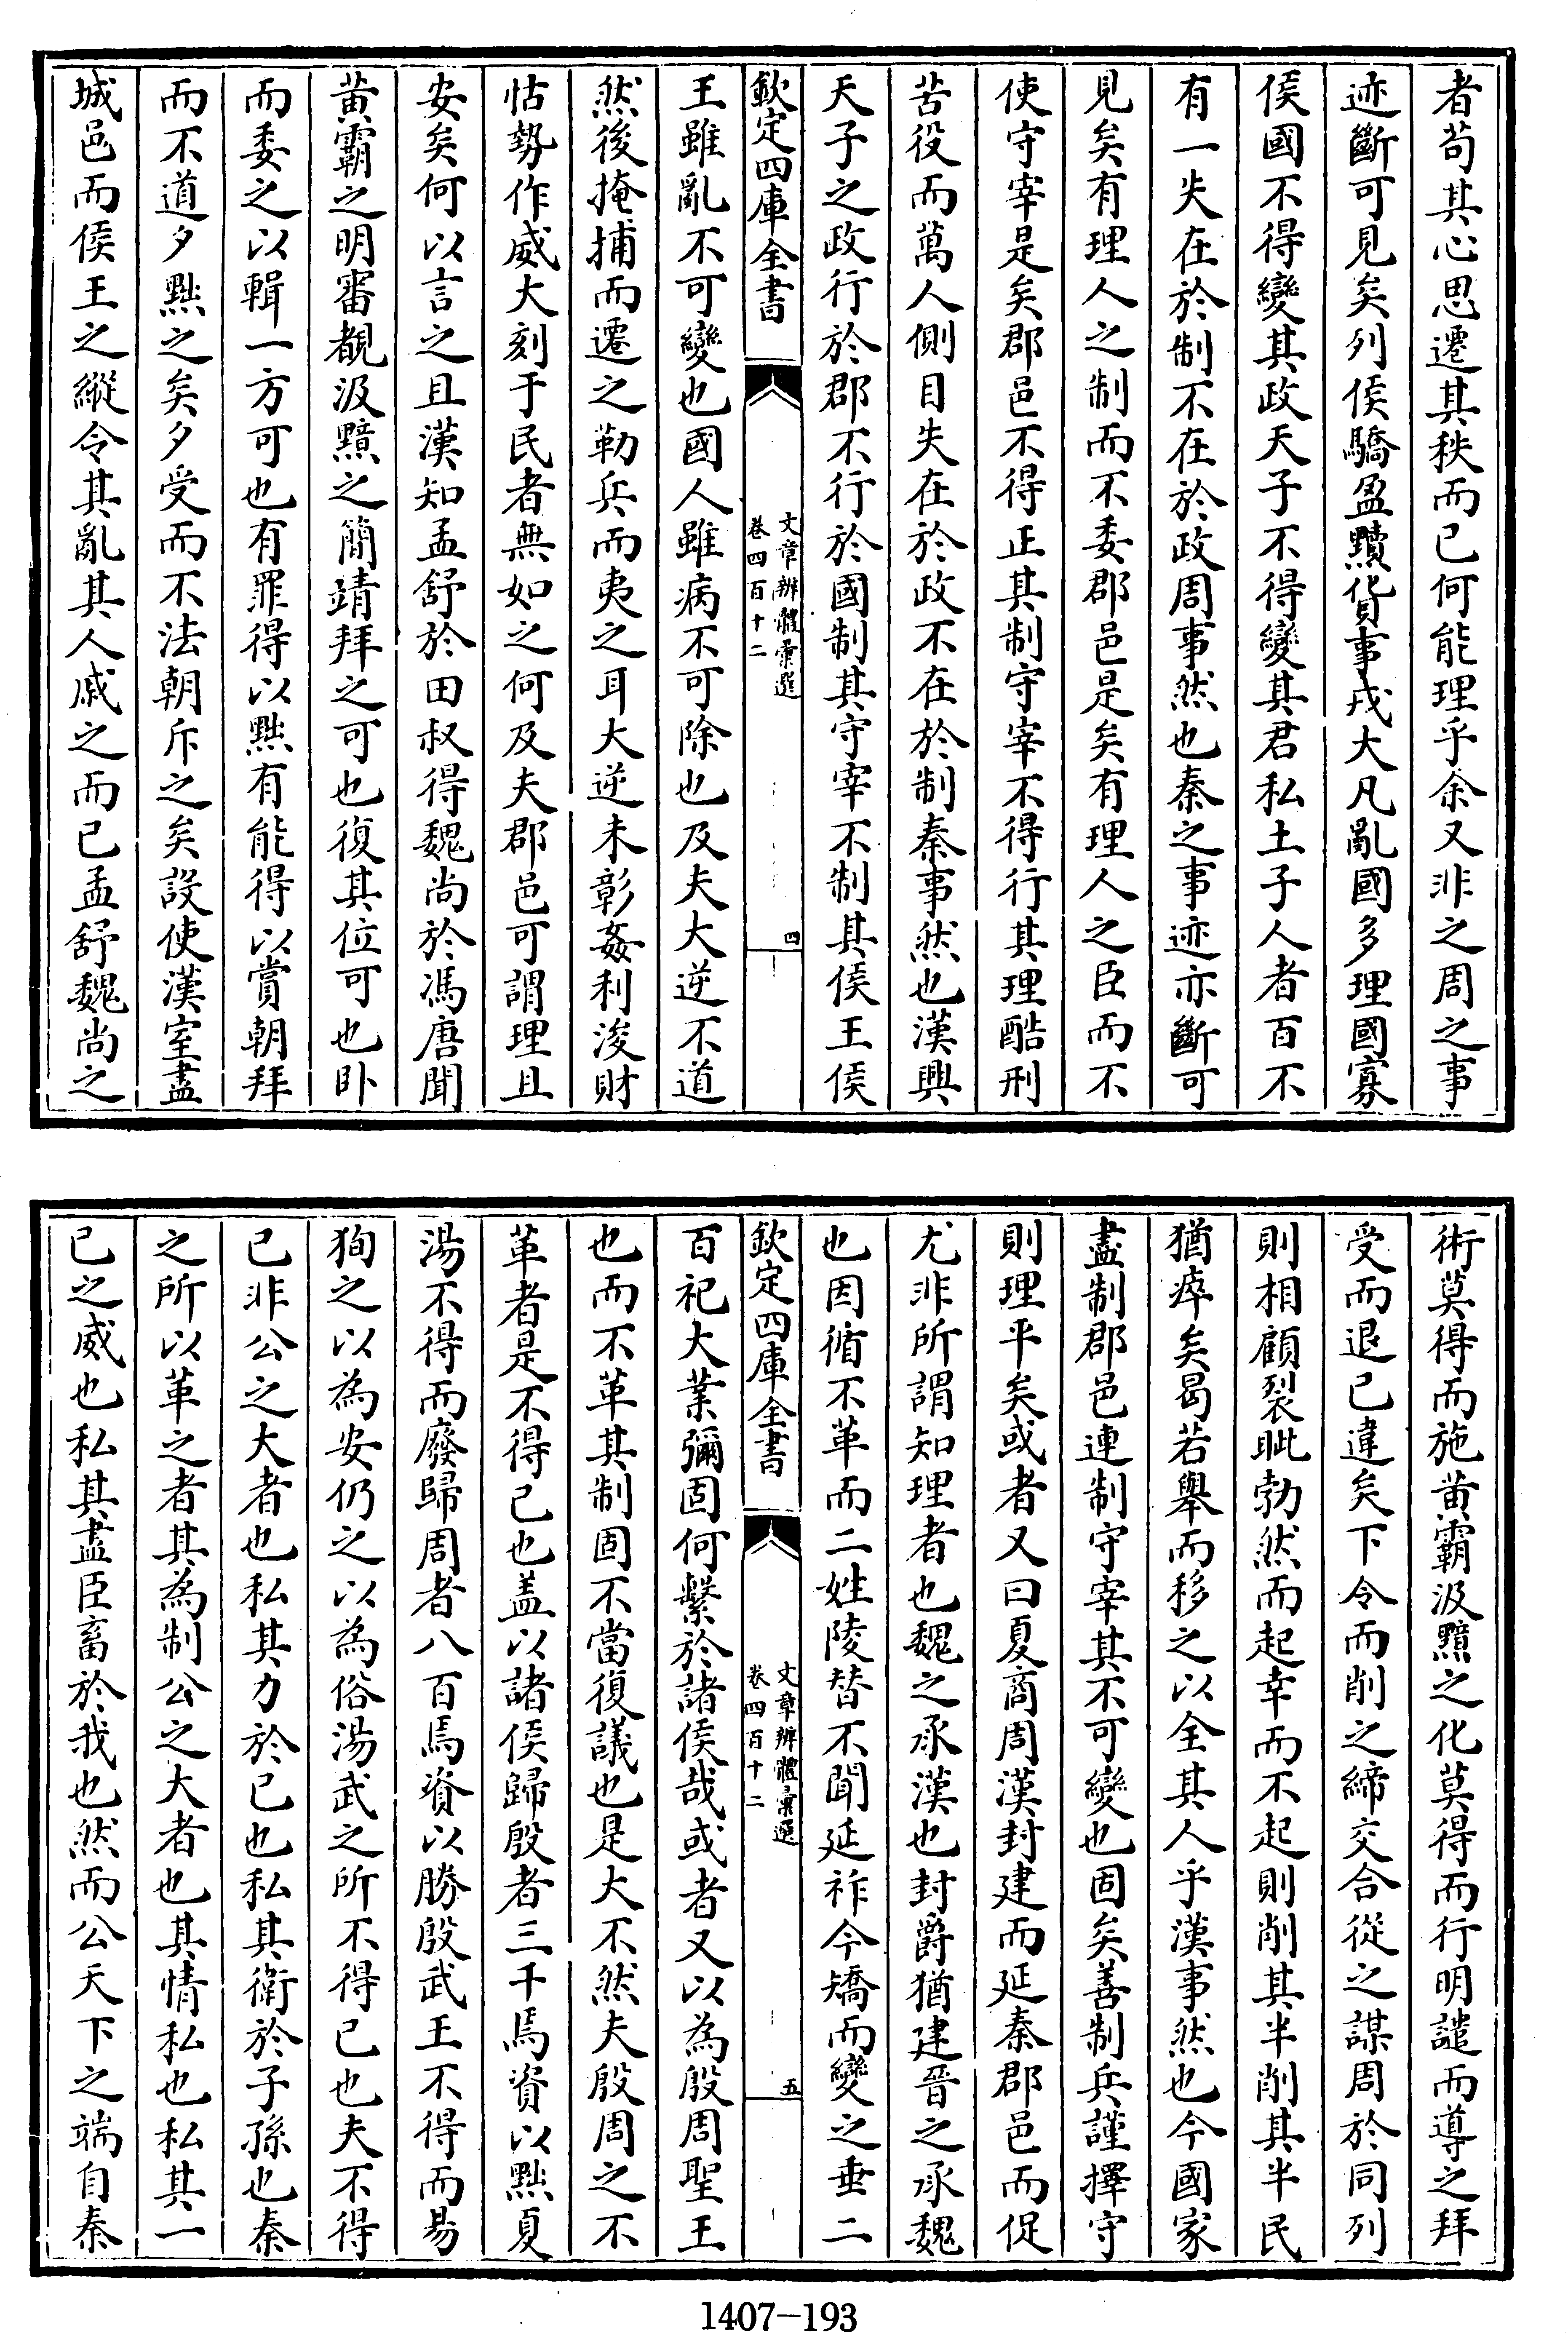 者苟其心思遷其秩而已何能理乎余又非之周之事
迹斷可見矣列侯驕盈黷貨事戎大凡亂國多理國寡
侯國不得變其政天子不得變其君私土子人者百不
有一失在於制不在於政周事然也秦之事迹亦斷可
見矣有理人之制而不委郡邑是矣有理人之臣而不
使守宰是矣郡邑不得正其制守宰不得行其理酷刑
苦役而萬人側目失在於政不在於制秦事然也漢興
天子之政行於郡不行於國制其守宰不制其侯王侯
欽定四庫全書
文章辨體彙選
卷四百十二
四
王雖亂不可變也國人雖病不可除也及夫大逆不道
然後掩捕而遷之勒兵而夷之耳大逆未彰姦利浚財
怙勢作威大刻于民者無如之何及夫郡邑可謂理且
安矣何以言之且漢知孟舒於田叔得魏尚於馮唐聞
黄霸之明審覩汲黯之簡靖拜之可也復其位可也卧
而委之以輯一方可也有罪得以黜有能得以賞朝拜
而不道夕黜之矣夕受而不法朝斥之矣設使漢室盡
城邑而侯王之縱令其亂其人戚之而已孟舒魏尚之
術莫得而施黄霸汲黯之化莫得而行明譴而導之拜
受而退已違矣下令而削之締交合從之謀周於同列
則相顧裂眦勃然而起幸而不起則削其半削其半民
猶瘁矣曷若舉而移之以全其人乎漢事然也今國家
盡制郡邑連制守宰其不可變也固矣善制兵謹擇守
則理平矣或者又曰夏商周漢封建而延秦郡邑而促
尤非所謂知理者也魏之承漢也封爵猶建晉之承魏
也因循不革而二姓陵替不聞延祚今矯而變之垂二
欽定四庫全書
文章辨體彙選
卷四百十二
五
百祀大業彌固何繫於諸侯哉或者又以為殷周聖王
也而不革其制固不當復議也是大不然夫殷周之不
革者是不得已也盖以諸侯歸殷者三千焉資以黜夏
湯不得而廢歸周者八百焉資以勝殷武王不得而易
狥之以為安仍之以為俗湯武之所不得已也夫不得
已非公之大者也私其力於已也私其衛於子孫也秦
之所以革之者其為制公之大者也其情私也私其一
已之威也私其盡臣畜於我也然而公天下之端自秦
1407-193